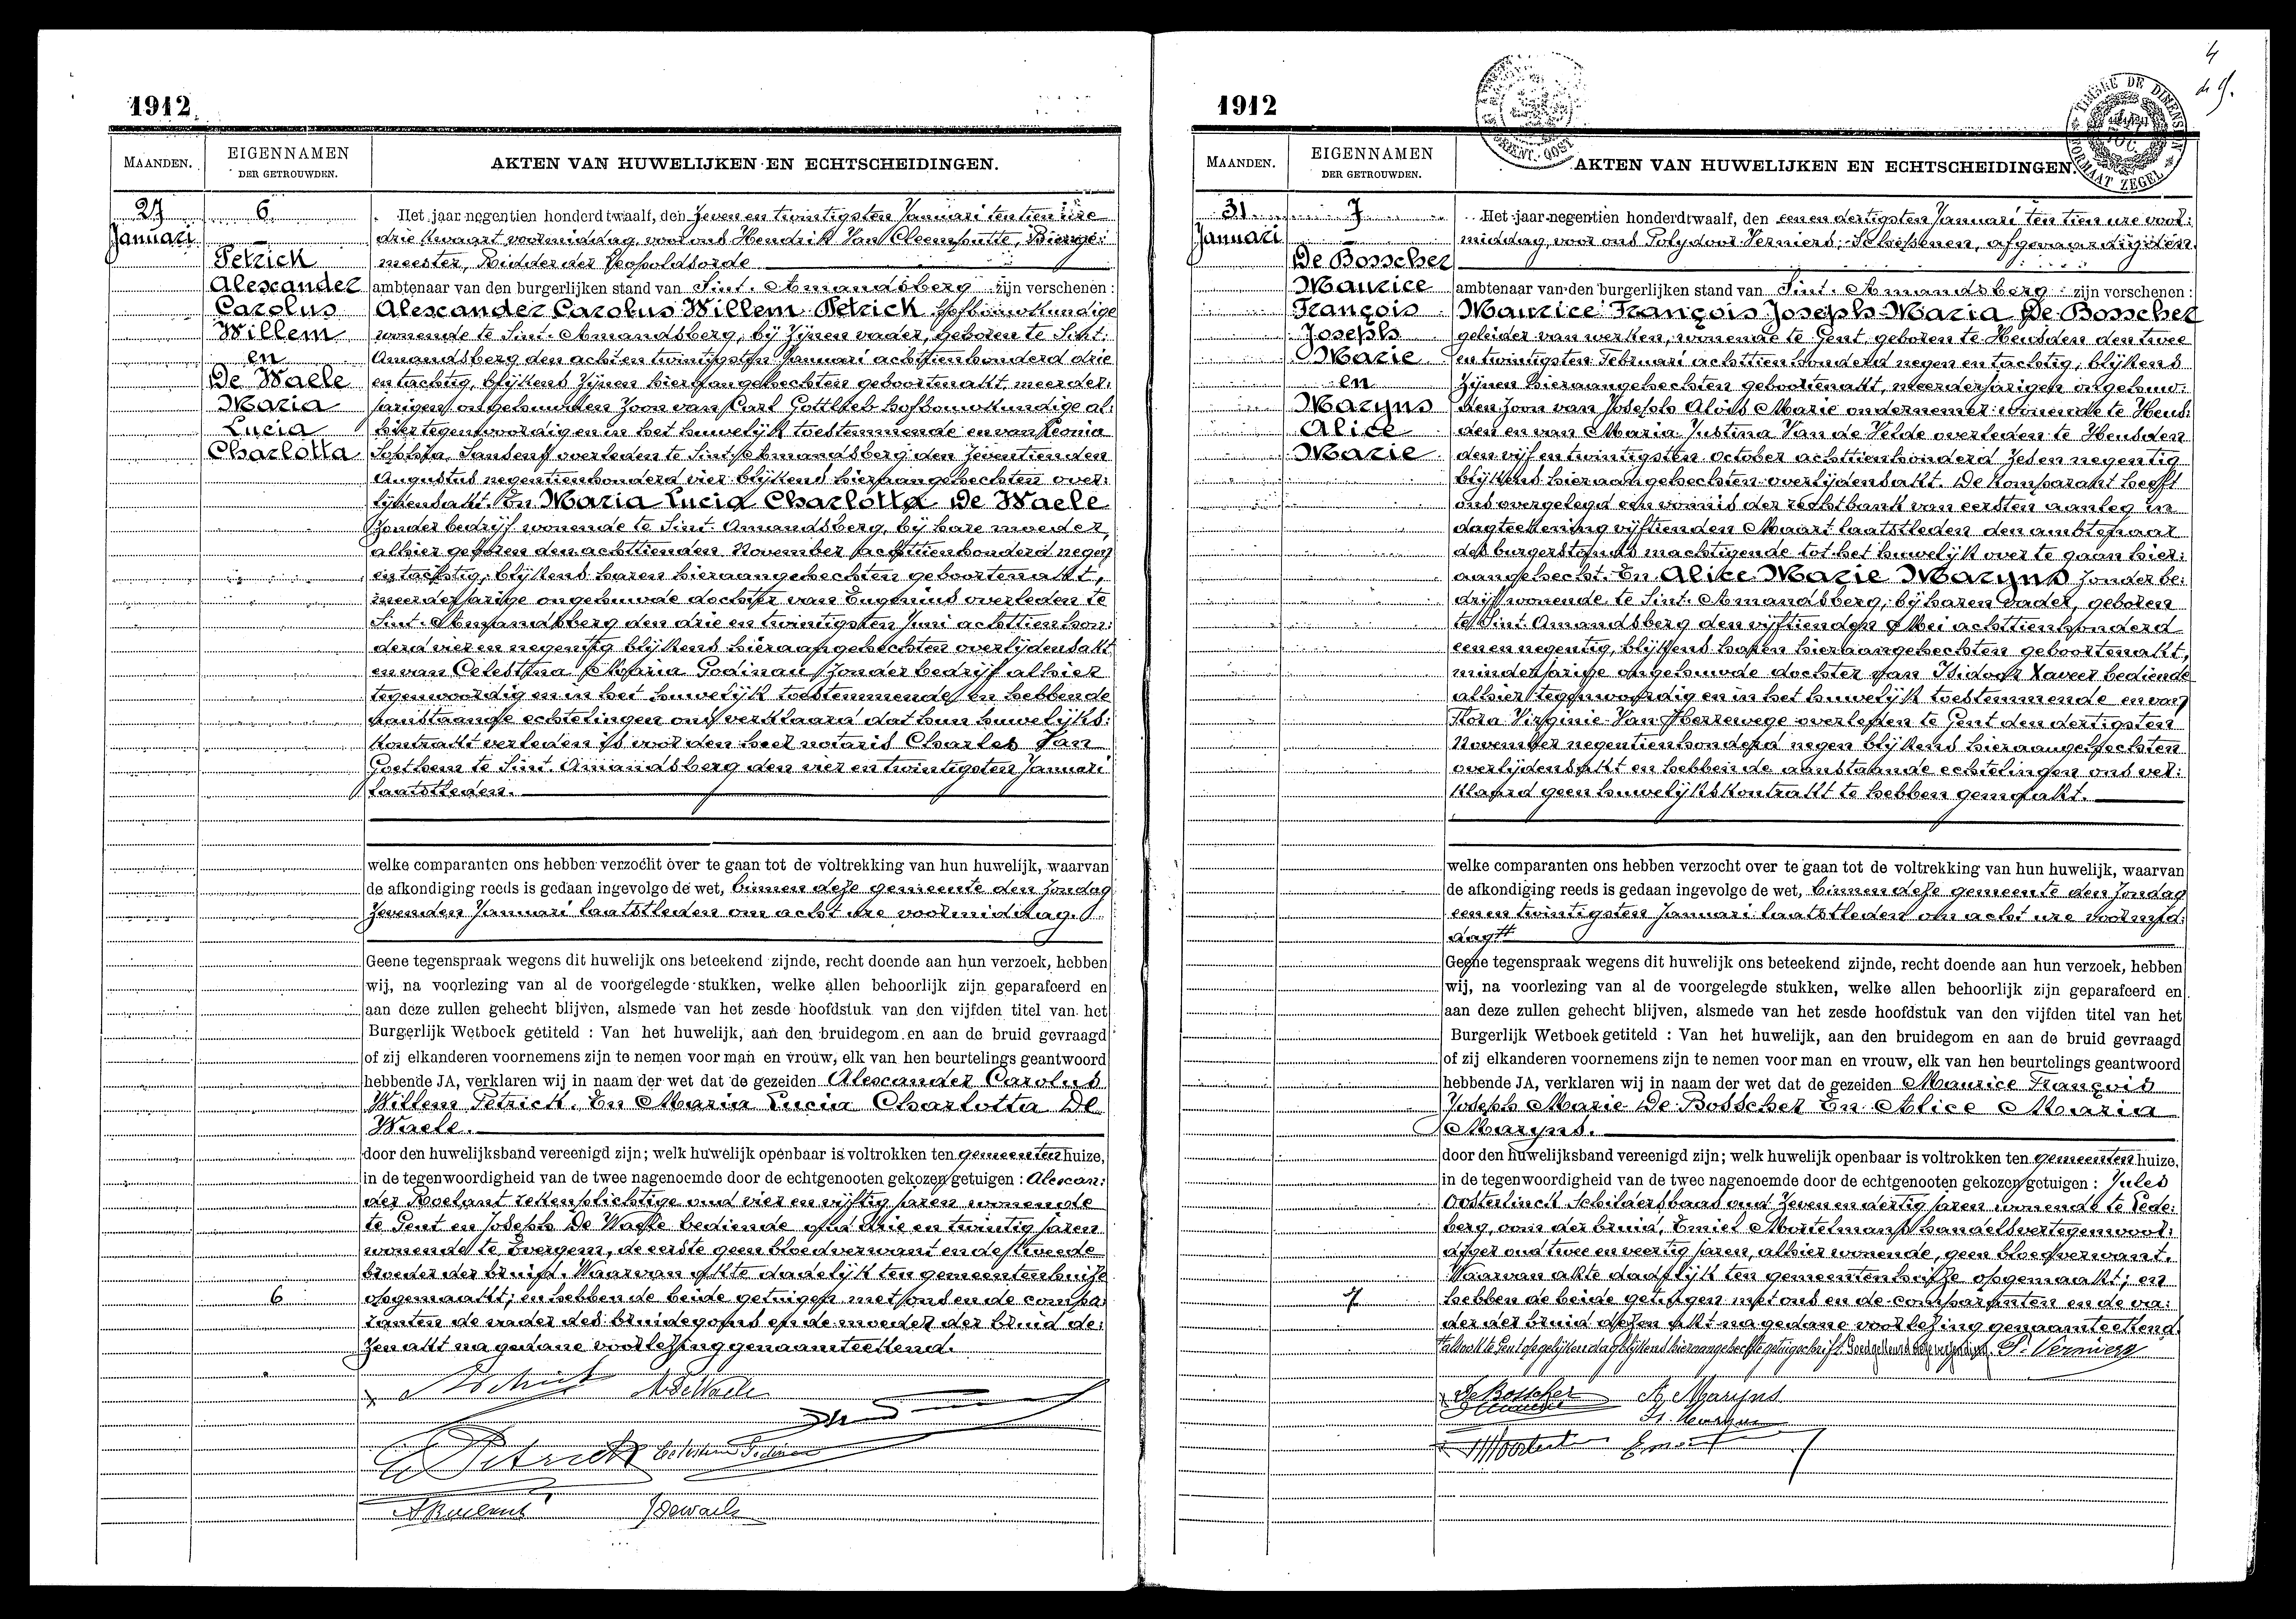 1912
MAANDEN.
EIGENNAMEN
DER GETROUWDEN.
AKTEN VAN HUWELIJKEN EN ECHTSCHEIDINGEN.
27
Januari
6
Petrick
Alexander
Carolus
Willem
en
De Waele
Maria
Lucia
Charlotta
Het jaar negentien honderd twaalf, den zeven en twintigsten Januari ten tien ure
drie kwaart voormiddag, voor ons Hendrik Van Cleemputte, Burge:
meester, Ridder der Leopoldsorde
ambtenaar van den burgerlijken stand van Sint. Amandsberg zijn verschenen :
Alexander Carolus Willem Petrick hofbouwkundige
wonende te Sint. Amandsberg, bij zijnen vader, geboren te Sint.
Amandsberg den acht en twintigsten Januari achttien honderd drie
en tachtig, blijkens zijnen hieraangehechten geboortenakt, meerder:
jarigen ongehuwden zoon van Carl Gottlieb hofbouwkundige al:
hier tegenwoordig en in het huwelijk toestemmende en van Leonia
Sophia Jansens overleden te Sint. Amandsberg den zeventienden
Augustus negentienhonderd vier blijkens hieraangehechten over:
lijdensakt. En Maria Lucia Charlotta De Waele
zonder bedrijf wonende te Sint Amandsberg, bij hare moeder,
alhier geboren den achttienden November achttienhonderd negen
en tachtig, blijkens haren hieraangehechten geboortenakt,
meerderjarige ongehuwde dochter van Eugenius overleden te
Sint. Amandsberg den drie en twintigsten Juni achttienhon:
derd vier en negentig blijkens hieraangehechten overlijdensakt
en van Celestina Maria Godinau zonder bedrijf alhier
tegenwoordig en in het huwelijk toestemmende en hebbende
aanstaande echtelingen ons verklaard dat hun huwelijks:
kontrakt verleden is voor den heer notaris Charles Van
Goethem te Sint. Amandsberg den vier en twintigsten Januari
laatstleden.
welke comparanten ons hebben verzocht over te gaan tot de voltrekking van hun huwelijk, waarvan
de afkondiging reeds is gedaan ingevolge de wet, binnen deze gemeente den zondag
zevenden Januari laatstleden om acht ure voormiddag.
Geene tegenspraak wegens dit huwelijk ons beteekend zijnde, recht doende aan hun verzoek, hebben
wij, na voorlezing van al de voorgelegde stukken, welke allen behoorlijk zijn geparafeerd en
aan deze zullen gehecht blijven, alsmede van het zesde hoofdstuk van den vijfden titel van het
Burgerlijk Wetboek getiteld : Van het huwelijk, aan den bruidegom en aan de bruid gevraagd
of zij elkanderen voornemens zijn te nemen voor man en vrouw, elk van hen beurtelings geantwoord
hebbende JA, verklaren wij in naam der wet dat de gezeiden Alexander Carolus
Willem Petrick. En Maria Lucia Charlotta De
Waele.
door den huwelijksband vereenigd zijn; welk huwelijk openbaar is voltrokken ten gemeentenhuize,
in de tegenwoordigheid van de twee nagenoemde door de echtgenooten gekozen getuigen : Alexan:
der Roelant rettenplichtige oud vier en vijftig jaren wonende
te Gent en Joseph De Waele bediende oud drie en twintig jaren
wonende te Evergem, de eerste geen bloedverwant en de tweede
broeder der bruid. Waarvan akte dadelijk ten gemeentenhuize
6
opgemaakt; en hebben de beide getuigen met ons en de compa:
ranten de vader des bruidegoms en de moeder der bruid de:
zen akt na gedane voorlezing genaamteekend.
M De Waele
Petrick Celestina Godinau
A Roelant J Dewaele
4
1912
TIMBRE DE DIMENSION
FORMAAT ZEGEL
MAANDEN.
EIGENNAMEN
DER GETROUWDEN.
AKTEN VAN HUWELIJKEN EN ECHTSCHEIDINGEN.
31
Januari
7
De Bosscher
Maurice
François
Joseph
Marie
en
Maryns
Alice
Marie
Het jaar negentien honderd twaalf, den een en dertigsten Januari ten tien ure voor:
middag, voor ons Polydoor Verniers, Schepenen, afgevaardigden
ambtenaar van den burgerlijken stand van Sint. Amandsberg zijn verschenen :
Maurice François Joseph Maria De Bosscher
geleider van werken, wonende te Gent geboren te Heusden den twee
en twintigsten Februari achttien honderd negen en tachtig, blijkens
zijnen hieraangehechten geboortenakt, meerderjarigen ongehuw:
den zoon van Joseph Aloïs Marie ondernemer wonende te Heus:
den en van Maria Justina Van de Velde overleden te Heusden
den vijf en twintigsten October achttienhonderd zes en negentig
blijkens hieraangehechten overlijdensakt. De komparant heeft
ons overgelegd een vonnis der rechtbank van eersten aanleg in
dagteekening vijftienden Maart laatstleden den ambtenaar
des burgerstands machtigende tot het huwelijk over te gaan hier:
aangehecht. En Alice Marie Maryns zonder be:
drijf wonende te Sint. Amandsberg, bij haren vader, geboren
te Sint Amandsberg den vijftienden Mei achttienhonderd
een en negentig, blijkens haren hieraangehechten geboortenakt,
minderjarige ongehuwde dochter van Isidoor Xaveer bediende
alhier tegenwoordig en in het huwelijk toestemmende en van
Flora Virginie Van Herrewege overleden te Gent den dertigsten
November negentienhonderd negen blijkens hieraangehechten
overlijdensakt en hebbende aanstaande echtelingen ons ver:
klaard geen huwelijkskontrakt te hebben gemaakt.
welke comparanten ons hebben verzocht over te gaan tot de voltrekking van hun huwelijk, waarvan
de afkondiging reeds is gedaan ingevolge de wet, binnen deze gemeente den zondag
een en twintigsten Januari laatstleden om acht ure voormid:
dag#
Geene tegenspraak wegens dit huwelijk ons beteekend zijnde, recht doende aan hun verzoek, hebben
wij, na voorlezing van al de voorgelegde stukken, welke allen behoorlijk zijn geparafeerd en
aan deze zullen gehecht blijven, alsmede van het zesde hoofdstuk van den vijfden titel van het
Burgerlijk Wetboek getiteld : Van het huwelijk, aan den bruidegom en aan de bruid gevraagd
of zij elkanderen voornemens zijn te nemen voor man en vrouw, elk van hen beurtelings geantwoord
hebbende JA, verklaren wij in naam der wet dat de gezeiden Maurice François
Joseph Marie De Bosscher En Alice Maria
Maryns.
door den huwelijksband vereenigd zijn; welk huwelijk openbaar is voltrokken ten gemeentenhuize,
in de tegenwoordigheid van de twee nagenoemde door de echtgenooten gekozen getuigen : Jules
Oosterlinck Schildersbaas oud zeven en dertig jaren wonende te Lede:
berg, oom der bruid, Emiel Mortelmans handelsvertegenwoor:
diger oud twee en veertig jaren, alhier wonende, geen bloedverwant.
Waarvan akte dadelijk ten gemeentenhuize opgemaakt; en
7
hebben de beide getuigen met ons en de comparanten en de va:
der der bruid dezen akt na gedane voorlezing genaamteekend.
# alsook te Gent gelijken dag blijkens hieraangehecht getuigschrift. Goedgekeurd deze verzending. P. Verniers
De Bosscher A. Maryns